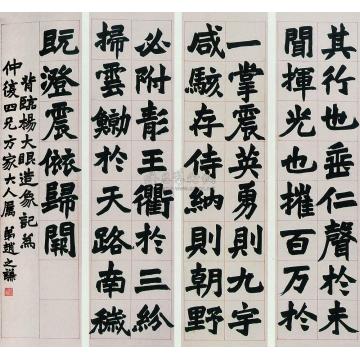 其行也垂仁聲於未
聞揮光也摧百萬於
一掌震英勇則九宇
咸駭存侍納則朝野
必附王衢於三紛
掃雲於天路南穢
既澄震歸闕
背臨楊大眼造象記為
仲復四兄方家大人屬 弟趙之謙